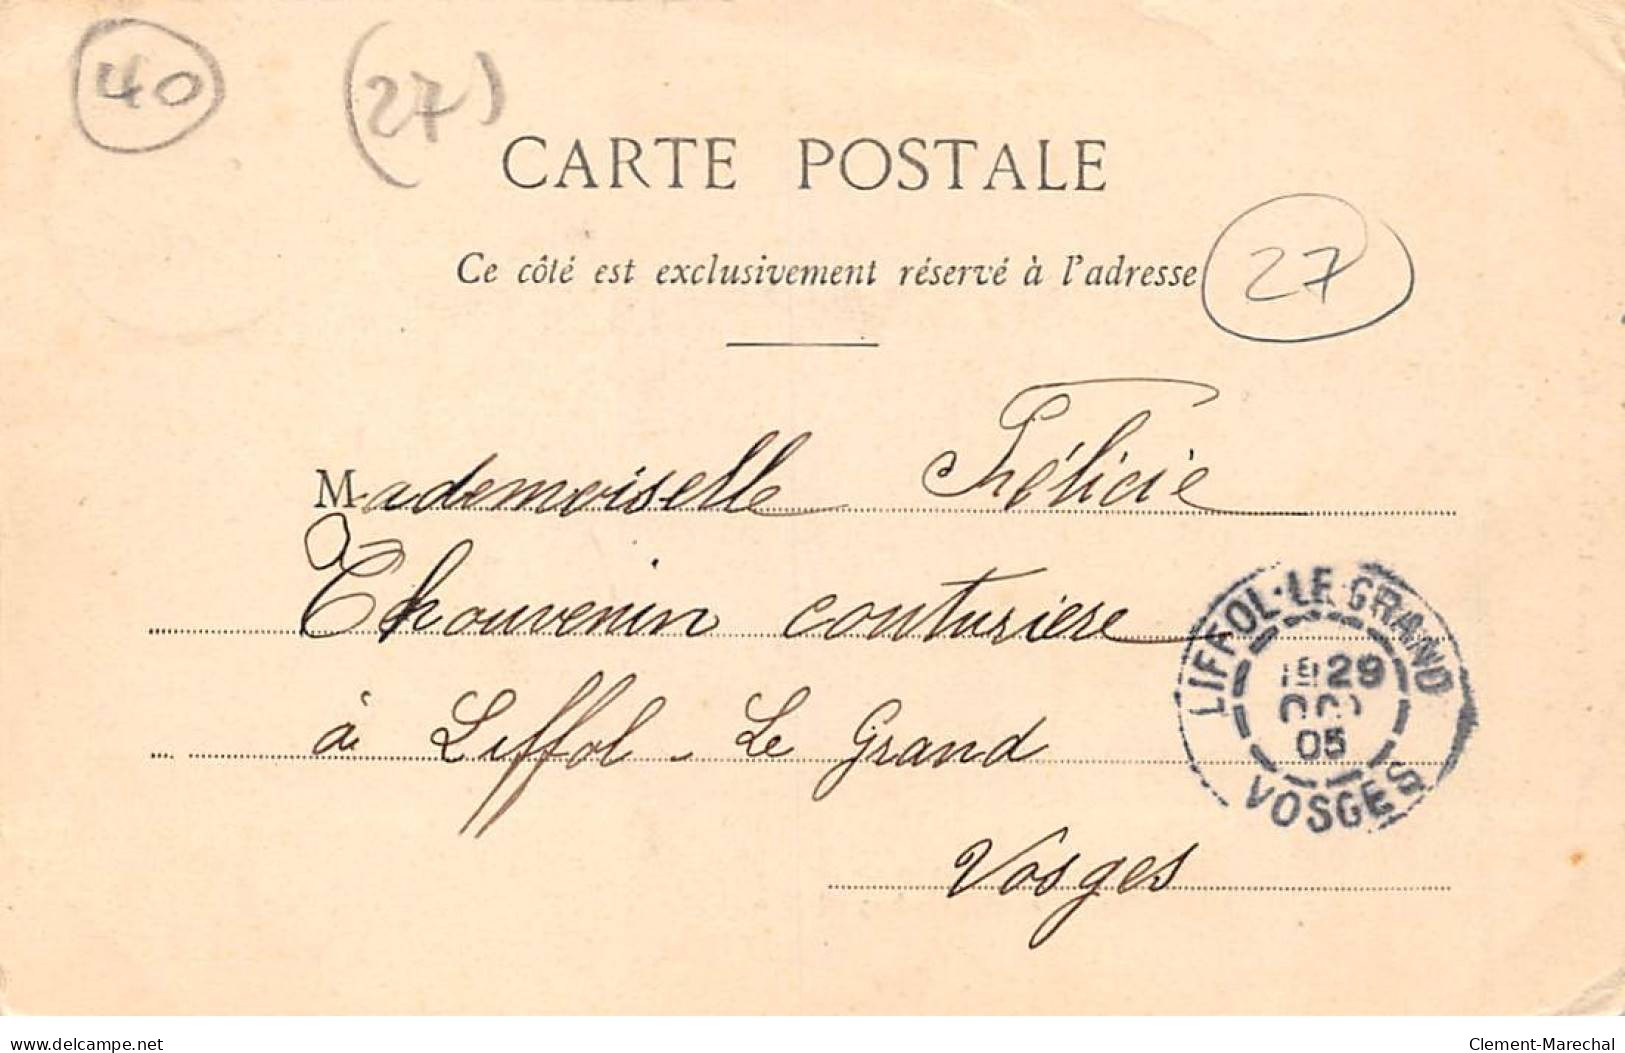 40 (27)
CARTE POSTALE
Ce côté est exclusivement réservé à l'adresse
27
Mademoiselle Félicie
Thouvenin couturière
à Liffol-Le Grand
Vosges
LIFFOL-LE-GRAND
29
05
VOSGES
www.delcampe.net
Clement-Marechal